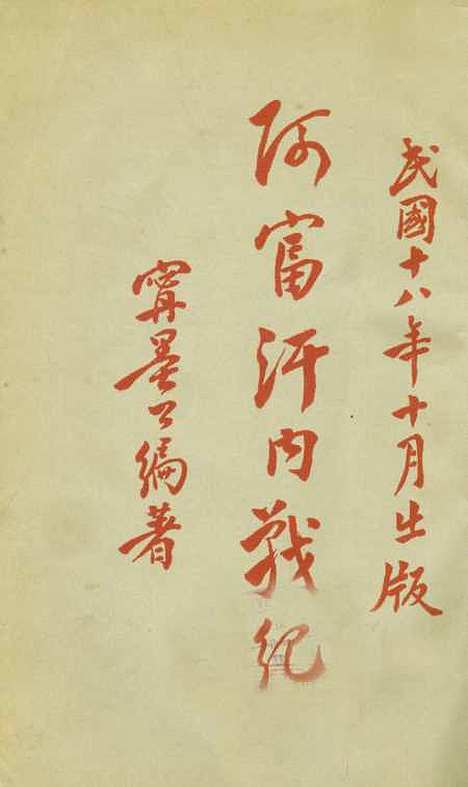 民國十八年十月出版
阿富汗內戰紀
甯墨公編著